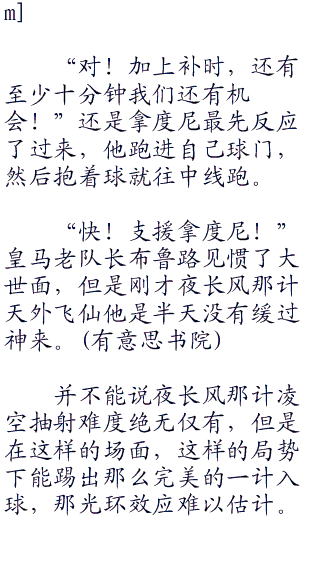 m]
“对！加上补时，还有
至少十分钟我们还有机
会！”还是拿度尼最先反应
了过来，他跑进自己球门，
然后抱着球就往中线跑。
“快！支援拿度尼！”
皇马老队长布鲁路见惯了大
世面，但是刚才夜长风那计
天外飞仙他是半天没有缓过
神来。(有意思书院)
并不能说夜长风那计凌
空抽射难度绝无仅有，但是
在这样的场面，这样的局势
下能踢出那么完美的一计入
球，那光环效应难以估计。